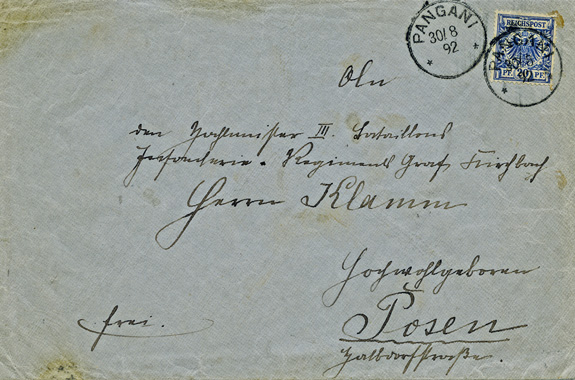 PANGANI
30/8
92
REICHSPOST
PANGANI
30/8
92
PF. PF.
An
den Zahlmeister III. Bataillons
Infanterie-Regiments Graf Kirchbach
Herrn Klamm
Hochwohlgeboren
frei.
Posen
Halbdorfstraße.